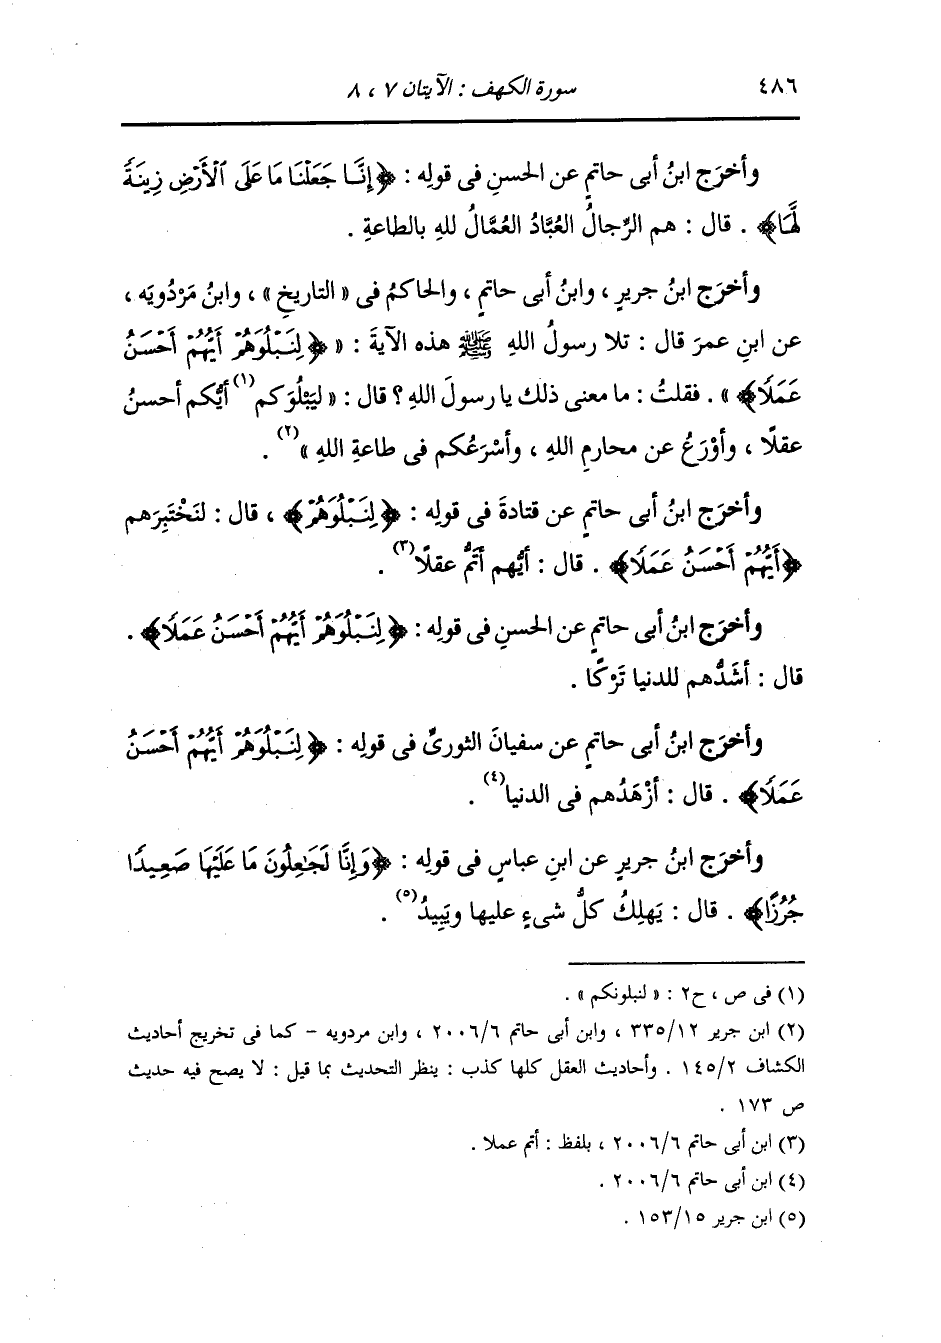 ٤٨٦ سورة الكهف : الآيتان ٧ ، ٨
وأخرَج ابنُ أبى حاتمٍ عن الحسنِ فى قولِه : ﴿إِنَّا جَعَلْنَا مَا عَلَى ٱلْأَرْضِ زِينَةً
لَّهَا﴾ . قال : هم الرِّجالُ العُبَّادُ العُمَّالُ للهِ بالطاعةِ .
وأخرَج ابنُ جريرٍ ، وابنُ أبى حاتمٍ ، والحاكمُ فى « التاريخِ » ، وابنُ مَرْدُويَه ،
عن ابنِ عمرَ قال : تلا رسولُ اللهِ ﷺ هذه الآيةَ : « ﴿لِنَبْلُوَهُمْ أَيُّهُمْ أَحْسَنُ
عَمَلًا﴾ » . فقلتُ : ما معنى ذلك يا رسولَ اللهِ ؟ قال : « ليَبْلُوَكم(١) أيُّكم أحسنُ
عقلًا ، وأوْرَعُ عن محارمِ اللهِ ، وأسْرَعُكم فى طاعةِ اللهِ »(٢) .
وأخرَج ابنُ أبى حاتمٍ عن قتادةَ فى قولِه : ﴿لِنَبْلُوَهُمْ﴾ ، قال : لنَخْتَبِرَهم
﴿أَيُّهُمْ أَحْسَنُ عَمَلًا﴾ . قال : أيُّهم أتَمُّ عقلًا(٣) .
وأخرَج ابنُ أبى حاتمٍ عن الحسنِ فى قولِه : ﴿لِنَبْلُوَهُمْ أَيُّهُمْ أَحْسَنُ عَمَلًا﴾ .
قال : أشَدُّهم للدنيا تَرْكًا .
وأخرَج ابنُ أبى حاتمٍ عن سفيانَ الثورىِّ فى قولِه : ﴿لِنَبْلُوَهُمْ أَيُّهُمْ أَحْسَنُ
عَمَلًا﴾ . قال : أزْهَدُهم فى الدنيا(٤) .
وأخرَج ابنُ جريرٍ عن ابنِ عباسٍ فى قولِه : ﴿وَإِنَّا لَجَٰعِلُونَ مَا عَلَيْهَا صَعِيدًا
جُرُزًا﴾ . قال : يَهلِكُ كلُّ شىءٍ عليها ويَبِيدُ(٥) .
(١) فى ص ، ح٢ : « لنبلونكم » .
(٢) ابن جرير ١٢/ ٣٣٥ ، وابن أبى حاتم ٦/ ٢٠٠٦ ، وابن مردويه - كما فى تخريج أحاديث
الكشاف ٢/ ١٤٥ . وأحاديث العقل كلها كذب : ينظر التحديث بما قيل : لا يصح فيه حديث
ص ١٧٣ .
(٣) ابن أبى حاتم ٦/ ٢٠٠٦ ، بلفظ : أتم عملا .
(٤) ابن أبى حاتم ٦/ ٢٠٠٦ .
(٥) ابن جرير ١٥/ ١٥٣ .